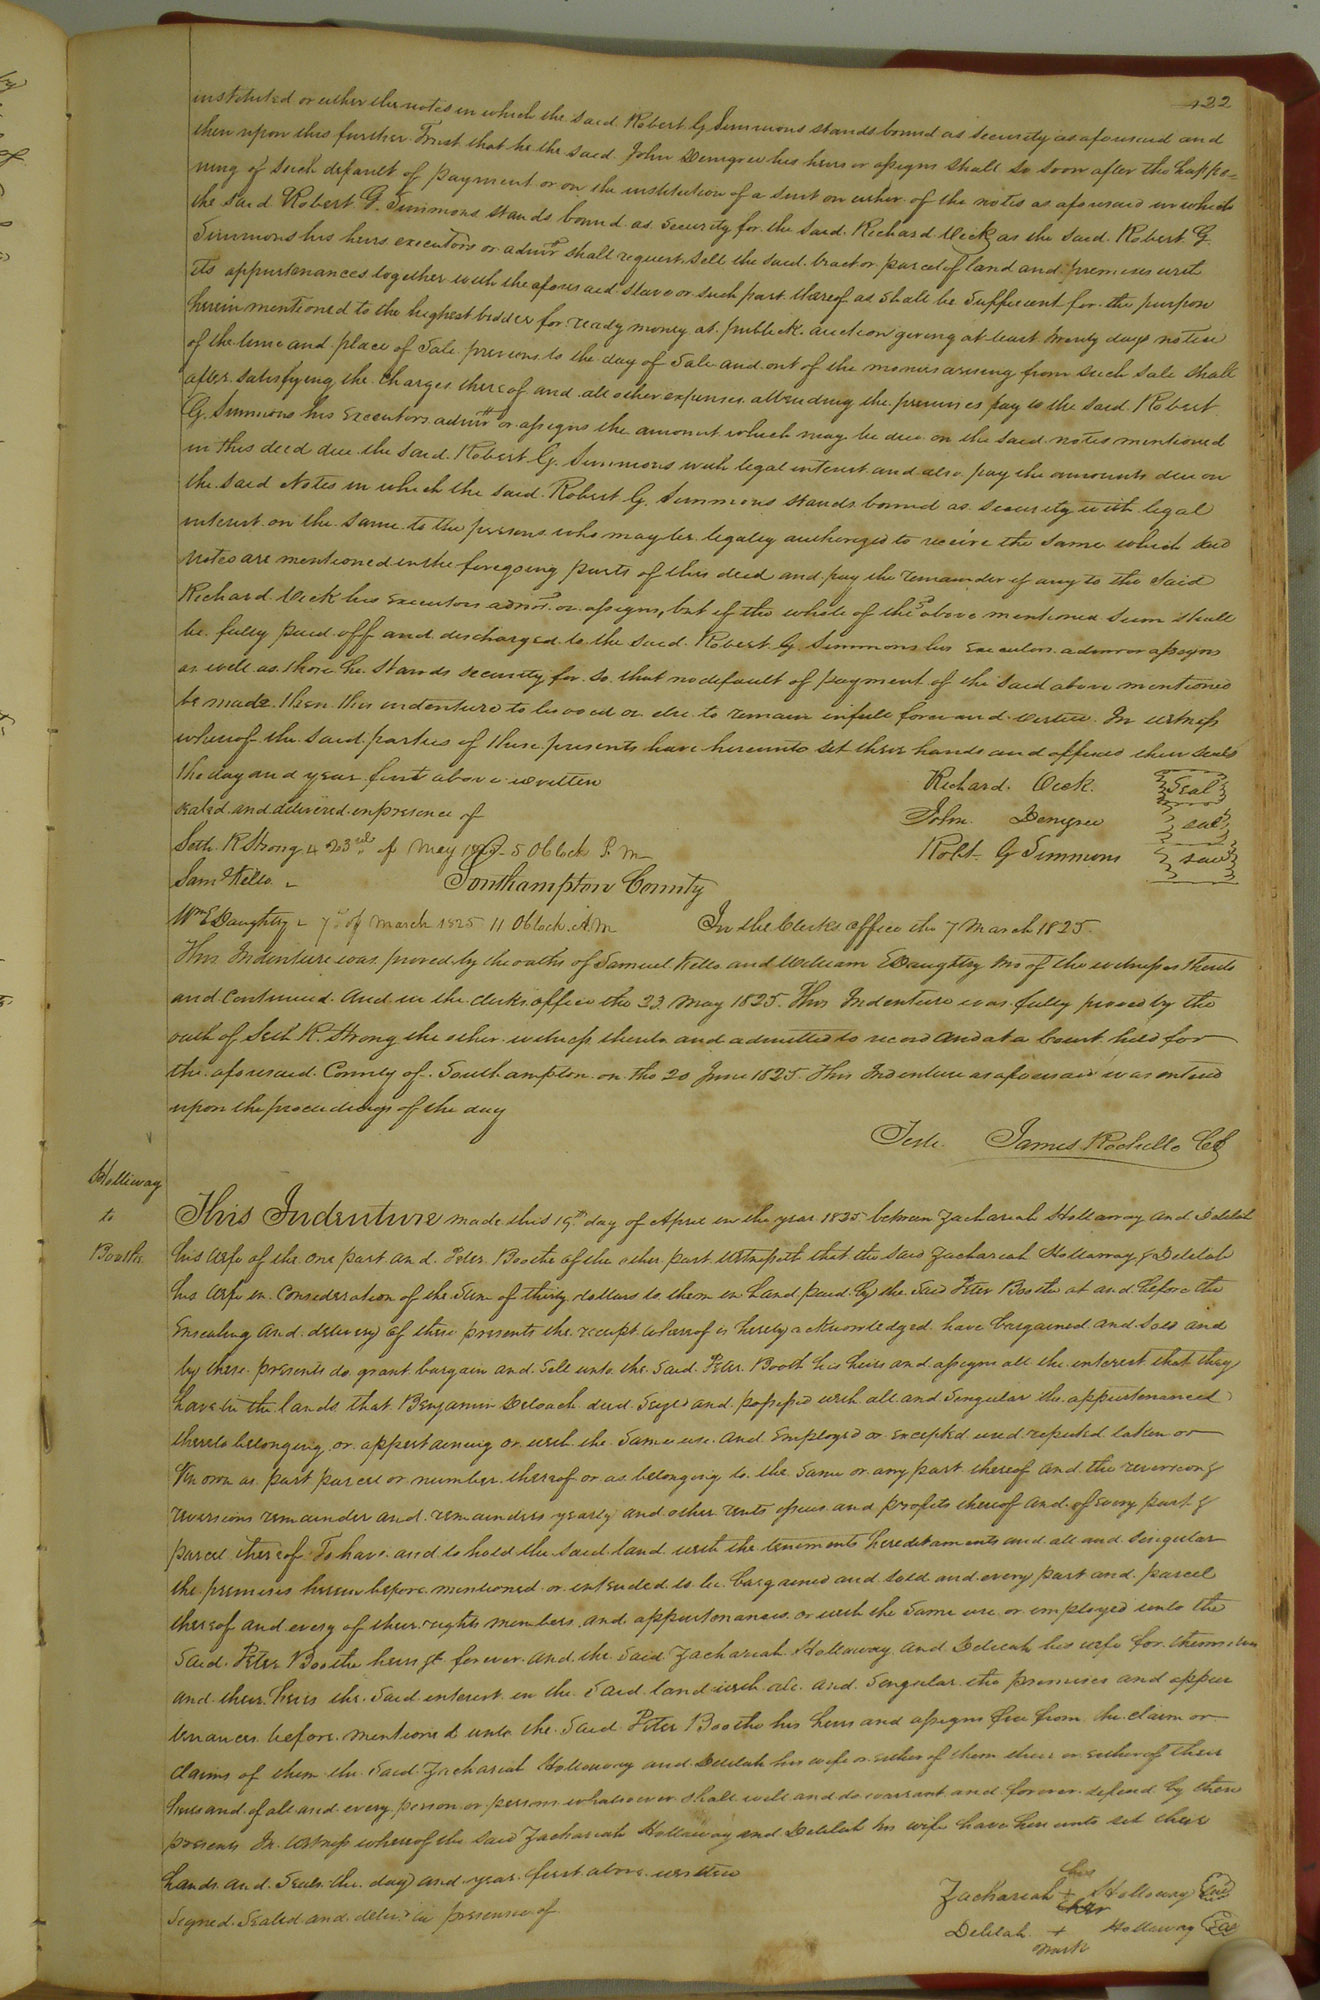 422
instituted or either the notes in which the said Robert G Simmons stands bound as security as aforesaid and
then upon this further Trust that he the said John Denegre his heirs or assigns shall so soon after the happe=
ning of such default of payment or on the institution of a suit on either of the notes as aforesaid in which
the said Robert G. Simmons stands bound as security for the said Richard Vick as the said Robert G.
Simmons his heirs executors or admrs shall request, sell the said tract or parcel of land and premises with
its appurtenances together with the aforesaid slave or such part thereof as shall be sufficient for the purpose
herein mentioned to the highest bidder for ready money at publick auction giving at least twenty days notice
of the time and place of Sale previous to the day of Sale and out of the monies arising from such sale shall
after satisfying the charges thereof and all other expenses attending the premises pay to the said Robert
G. Simmons his Executors admrs or assigns the amount which may be due on the said notes mentioned
in this deed due the said Robert G. Simmons with legal interest and also pay the amounts due on
the said Notes in which the said Robert G. Simmons stands bound as security with legal
interest on the same to the persons who may be legally authorized to receive the same which said
notes are mentioned in the foregoing parts of this deed and pay the remainder if any to the said
Richard Vick his Executors admrs or assigns, but if the whole of the above mentioned sum shall
be fully paid off and discharged to the said Robert G Simmons his Executors admr or assigns
as well as those he stands security for so that no default of payment of the said above mentioned
be made then this indenture to be void or else to remain in full force and virtue. In witness
whereof the said parties of these presents have hereunto set their hands and affixed their seals
the day and year first above written
Richard Vick. Seal
sealed and delivered in presence of
John Denegre seal
Seth R Strong 4 23rd of May 1825 5 Oblock P.m
Robt G Simmons seal
Saml Kello
Southampton County
Wm E Daughtry 7th of March 1825 11 Oblock A.m
In the Clerks office the 7 March 1825.
This Indenture was proved by the oaths of Samuel Kello and William E Daughtry two of the witnesses thereto
and continued. And in the clerks office the 23 May 1825. This Indenture was fully proved by the
oath of Seth R. Strong the other witness thereto and admitted to record And at a Court held for
the aforesaid County of Southampton on the 20 June 1825. This Indenture as aforesaid was entered
upon the proceedings of the day
Teste. James Rochelle CC
Holliway
to
Booth
This Indenture made this 19th day of April in the year 1825 between Zachariah Hollaway and Delilah
his wife of the one part and Peter Boothe of the other part Witnesseth that the said Zachariah Hollaway & Delilah
his wife in Consideration of the Sum of thirty dollars to them in hand paid by the said Peter Boothe at and before the
Ensealing and delivery of these presents the receipt whereof is hereby acknowledged have bargained and sold and
by these presents do grant bargain and Sell unto the said Peter Booth his heirs and assigns all the interest that they
have in the lands that Benjamin Deloach decd Seized and possessed with all and Singular the appurtenances
thereto belonging or appertaining or with the same use and Employed or excepted used reputed taken or
Known as part parcel or number thereof or as belonging to the same or any part thereof and the reversion &
reversions remainder and remainders yearly and other rents issues and profits thereof and of every part &
parcel thereof. To have and to hold the said land with the tenements hereditaments and all and singular
the premises herein before mentioned or intended to be bargained and sold and every part and parcel
thereof and every of their rights members and appurtenances or with the same use or employed unto the
Said Peter Boothe heirs &c forever and the said Zachariah Hollaway and Delilah his wife for themselves
and their heirs the said interest in the said land with all and Singular the premises and appur
tenances before mentioned unto the said Peter Boothe his heirs and assigns free from the claim or
claims of them the said Zachariah Hollaway and Delilah his wife or either of them their or either of their
heirs and of all and every person or persons whatsoever shall will and do warrant and forever defend by these
presents In Witness whereof the said Zachariah Hollaway and Delilah his wife have hereunto set their
hands and Seals the day and year first above written
his
Zachariah + Hollaway Seal
Signed Sealed and delivd in presence of
Delilah + Hollaway Seal
mark